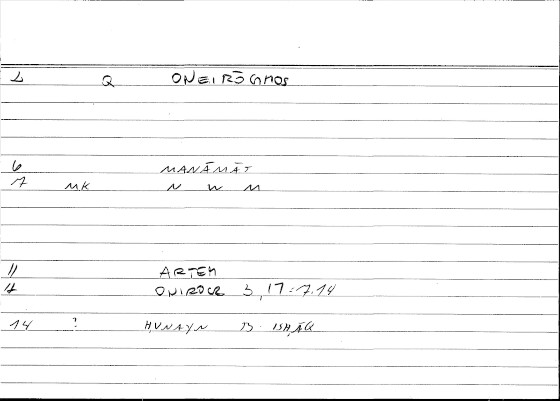 1 Q ONEIRŌGMOS
6 MANĀMĀT
7 MK N W M
11 ARTEM
12 ONIROCR 3, 17:7.14
14 ? ḤUNAYN B. ISḤĀQ